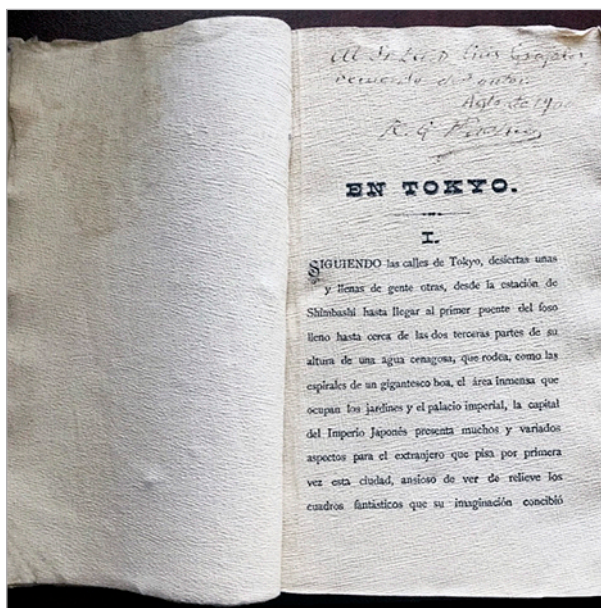 Al Sr Lic. D. Luis
recuerdo del autor
Agto de 1900
EN TOKYO.
I.
SIGUIENDO las calles de Tokyo, desiertas unas
y llenas de gente otras, desde la estación de
Shimbashi hasta llegar al primer puente del foso
lleno hasta cerca de las dos terceras partes de su
altura de una agua cenagosa, que rodea, como las
espirales de un gigantesco boa, el área inmensa que
ocupan los jardines y el palacio imperial, la capital
del Imperio Japonés presenta muchos y variados
aspectos para el extranjero que pisa por primera
vez esta ciudad, ansioso de ver de relieve los
cuadros fantásticos que su imaginación concibió